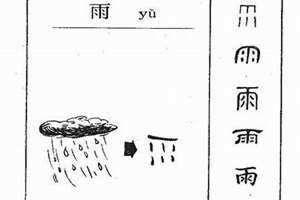 雨 yǔ
雨
雨
雨
雨
雨